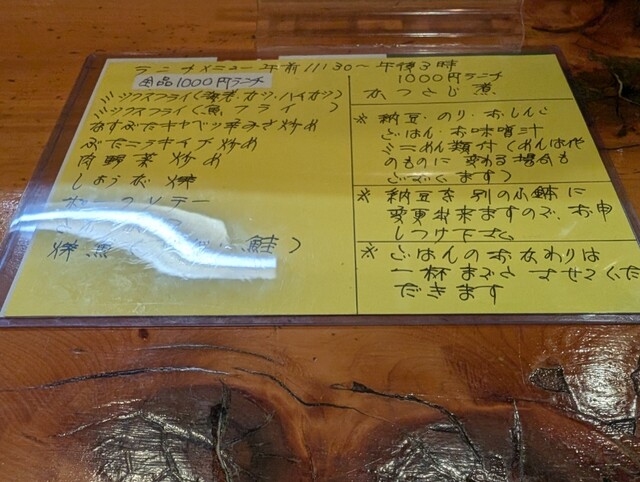 ランチメニュー 午前11:30〜午后3時
全品1000円ランチ
ミックスフライ(海老・カツ・ハイカツ)
ミックスフライ(魚フライ)
なすぶたキャベツ辛みそ炒め
ぶたニラキムチ炒め
肉野菜炒め
しょうが焼
ポークソテー
焼魚 鮭)
1000円ランチ
かつとじ煮
※ 納豆・のり・おしんこ
ごはん・お味噌汁
ミニめん類付(めんは他
のものに変わる場合も
ございます)
※ 納豆を別の小鉢に
変更出来ますので、お申
しつけ下さい
※ ごはんのおかわりは
一杯までと させてくた
だきます